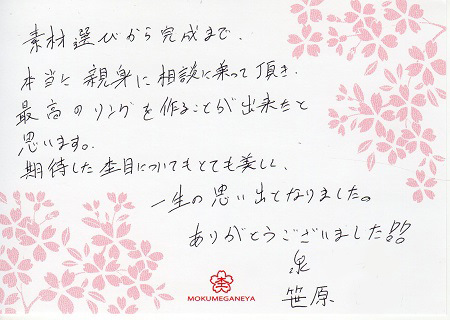 素材選びから完成まで、
本当に親身に相談に乗って頂き、
最高のリングを作ることが出来たと
思います。
期待した杢目についてもとても美しく、
一生の思い出となりました。
ありがとうございました!!
泉
笹原
MOKUMEGANEYA